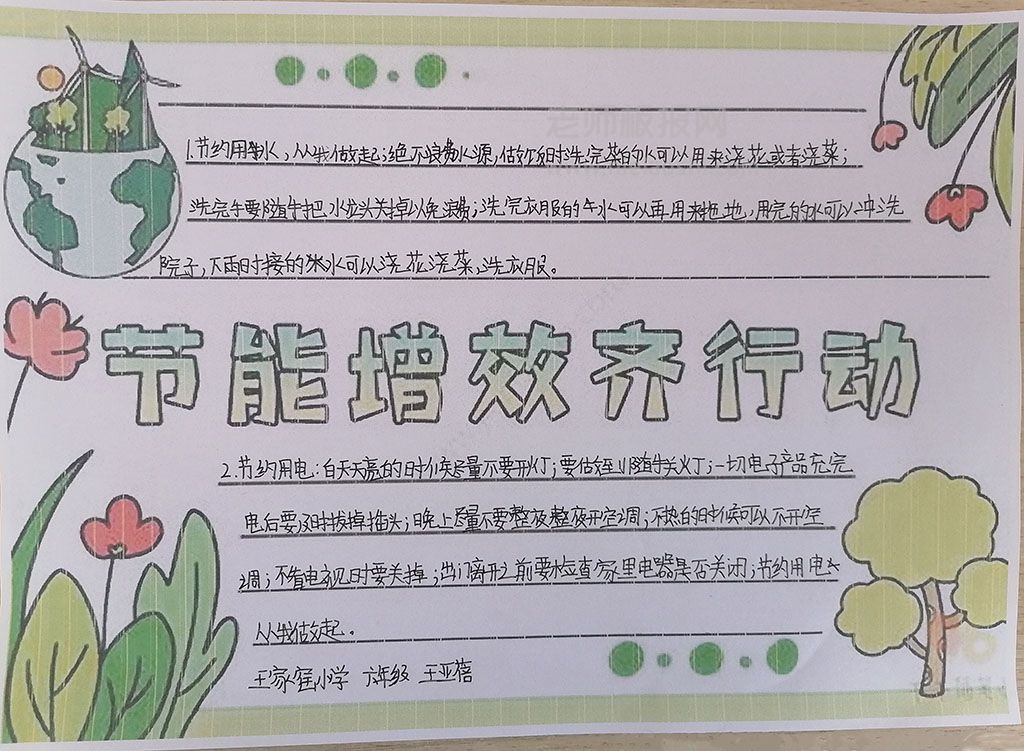 老师板报网
1.节约用水，从我做起；绝不浪费水源，做饭时洗完菜的水可以用来浇花或者浇菜；
洗完手要随手把水龙头关掉以免浪费；洗完衣服的水可以再用来拖地，用完的水可以冲洗
院子，下雨时接的水可以浇花浇菜，洗衣服。
节能增效齐行动
2.节约用电：白天天亮的时候尽量不要开灯；要做到随手关灯；一切电子产品充完
电后要及时拔掉插头；晚上尽量不要整夜整夜开空调；不热的时候可以不开空
调；不看电视时要关掉；出门离开之前要检查家里电器是否关闭；节约用电
从我做起。
王家窑小学 六年级 王亚蓓